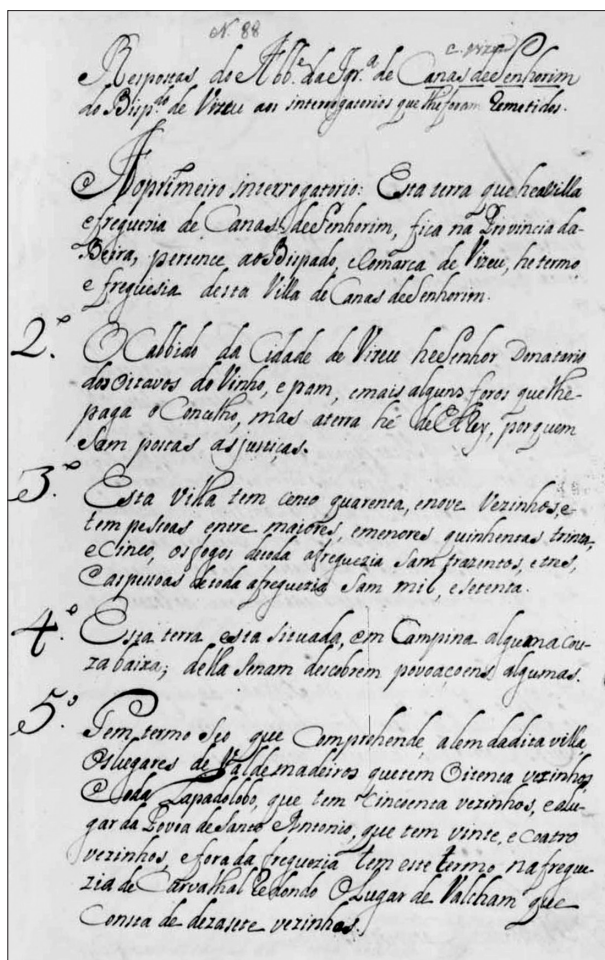 N. 88
Respostas do Abb.e da Igr.a de Canas de Senhorim
do Bisp.do de Vizeu aos interrogatorios que lhe foram Remetidos.
Ao primeiro interrogatorio: Esta terra que he a Villa
e freguezia de Canas de Senhorim, fica na Provincia da
Beira, pertence ao Bispado, e Comarca de Vizeu, he termo
e freguesia desta Villa de Canas de Senhorim.
2.º O Cabbido da Cidade de Vizeu he Senhor Donatario
dos Oitavos do Vinho, e pam, e mais alguns foros que lhe
paga o Concelho, mas a terra he de ElRey, por quem
sam postas as justiças.
3.º Esta Villa tem cento quarenta, e nove Vezinhos, e
tem pessoas entre maiores, e menores quinhentas, trinta,
e Cinco, os fogos de toda a freguezia sam trazentos, e tres,
e as pessoas de toda a freguezia sam mil, e setenta.
4.º Esta terra esta situada, em Campina alguma cou-
za baixa; della se nam descobrem povoaçoens algumas.
5.º Tem termo seo que Comprehende, alem da dita villa,
os lugares de Valdemadeiros que tem Oitenta vezinhos,
e o da Lapa do lobo, que tem Cincoenta vezinhos, e a lu-
gar da Povoa de Santo Antonio, que tem vinte, e coatro
vezinhos, e fora da freguezia tem este termo na fregue-
zia de Carvalhal Redondo o Lugar de Valcham que
Consta de dezasete vezinhos.